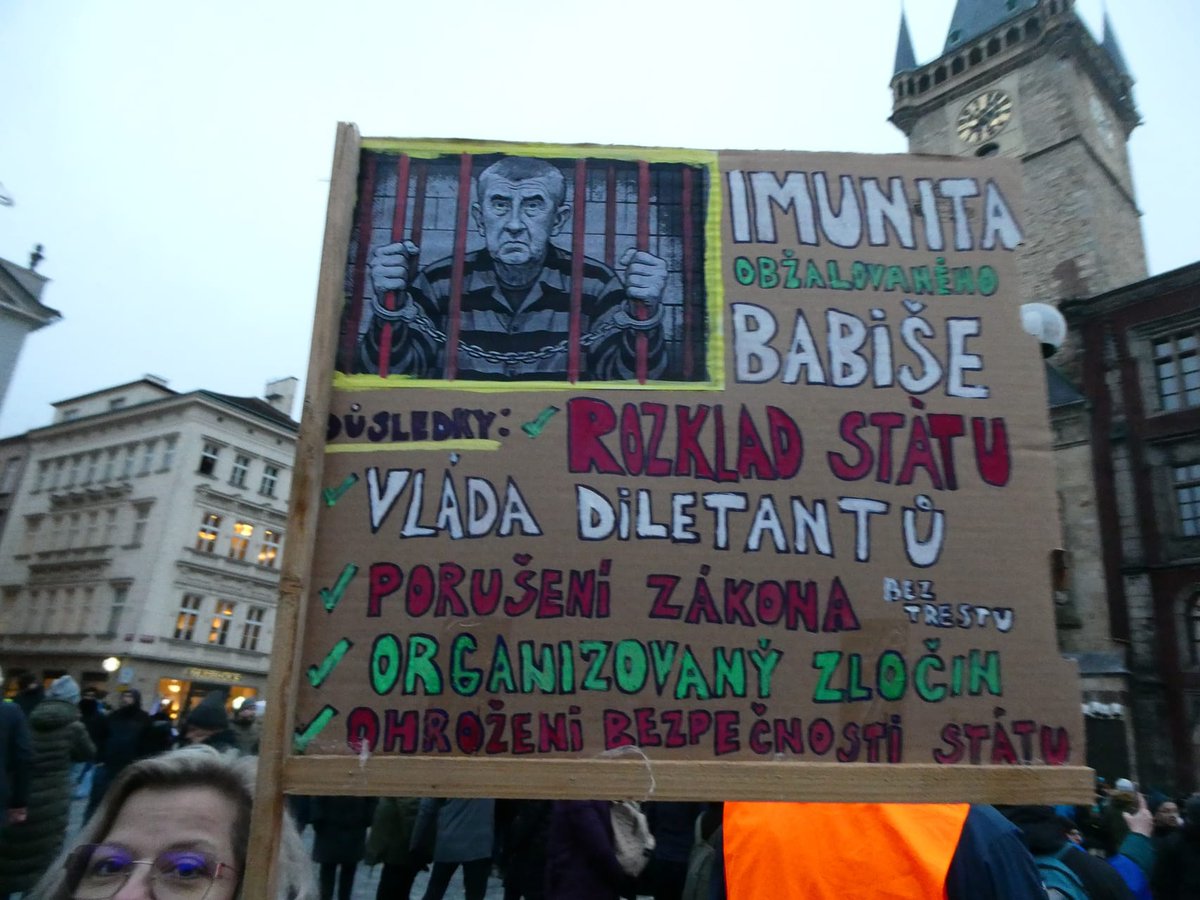 IMUNITA
OBŽALOVANÉHO
BABiŠE
DŮSLEDKY: ✓ ROZKLAD STÁTU
✓ VLÁDA DiLETANTŮ
✓ PORUŠENÍ ZÁKONA BEZ
TRESTU
✓ ORGANIZOVANÝ ZLOČIN
✓ OHROŽENi BEZPEČNOSTi STÁTU